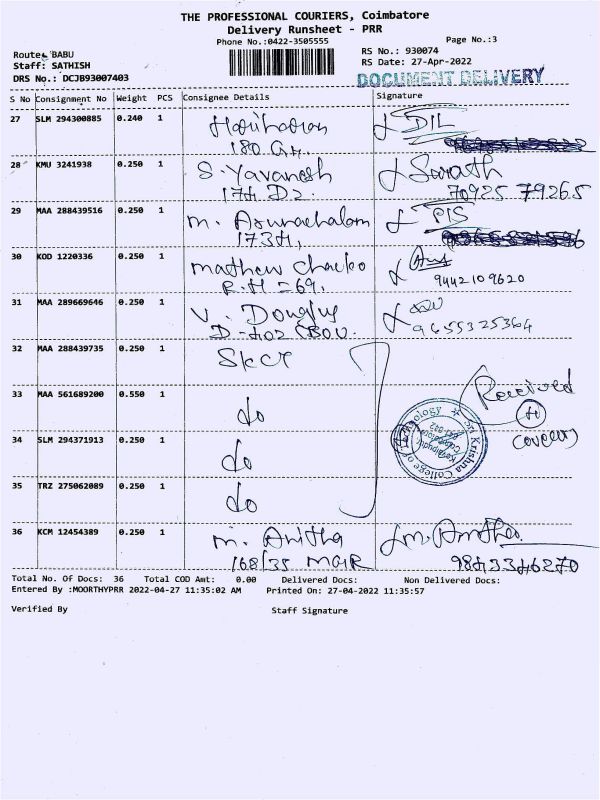 THE PROFESSIONAL COURIERS, Coimbatore
Delivery Runsheet - PRR
Phone No.:0422-3505555
Page No.:3
Route: BABU
RS No.: 930074
Staff: SATHISH
RS Date: 27-Apr-2022
DRS No.: DCJB93007403
DOCUMENT DELIVERY
S No Consignment No Weight PCS Consignee Details Signature
27 SLM 294300885 0.240 1 Hariharan DIL
180
28 KMU 3241938 0.250 1 S. Yavanesh Sarath
174 D2. 70925 79265
29 MAA 288439516 0.250 1 m. Arunachalam PIS
173H,
30 KOD 1220336 0.250 1 mathew Chacko
R.H = 69. 9442109620
31 MAA 289669646 0.250 1 V. Douglus
D-402 9655325364
32 MAA 288439735 0.250 1 SKCT
33 MAA 561689200 0.550 1 do Received
34 SLM 294371913 0.250 1 do covers
Sri Krishna College of Technology
Kovaipudur
Coimbatore
641 042
35 TRZ 275062089 0.250 1 do
36 KCM 12454389 0.250 1 m. Anitha m. Anitha
168/35 MGR 9843346270
Total No. Of Docs: 36 Total COD Amt: 0.00 Delivered Docs: Non Delivered Docs:
Entered By :MOORTHYPRR 2022-04-27 11:35:02 AM Printed On: 27-04-2022 11:35:57
Verified By Staff Signature